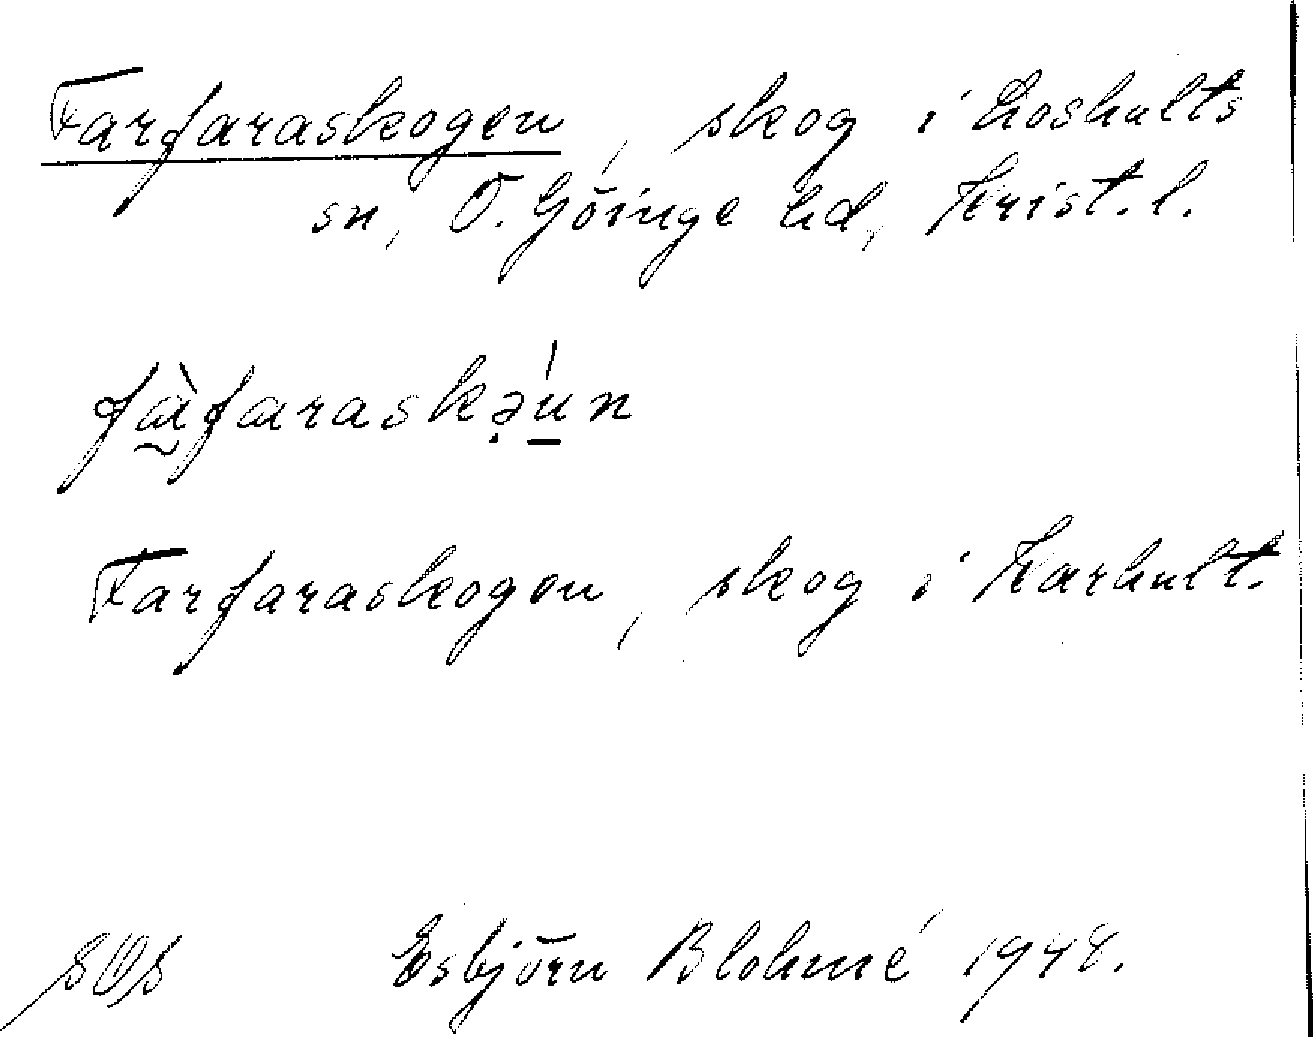 Farfaraskogen, skog i Loshults
sn, Ö. Göinge hd, Krist. l.
fàfaraskə̣́u̲n
Farfaraskogen, skog i Karhult.
Esbjörn Blohmé 1948.